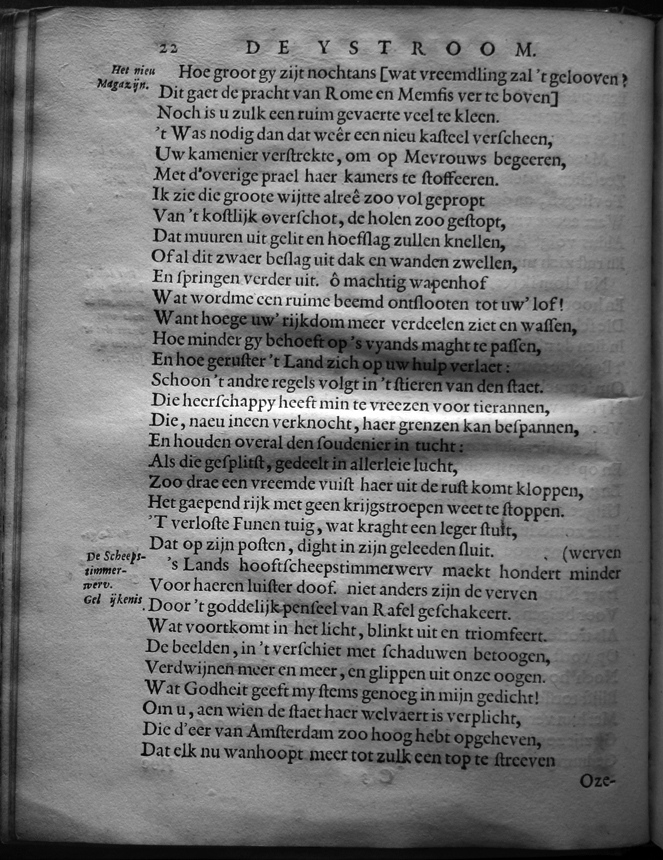 22 DE YSTROOM.
Het nieu
Magazijn.
Hoe groot gy zijt nochtans [wat vreemdling zal 't gelooven?
Dit gaet de pracht van Rome en Memfis ver te boven]
Noch is u zulk een ruim gevaerte veel te kleen.
't Was nodig dan dat weêr een nieu kaſteel verſcheen,
Uw kamenier verſtrekte, om op Mevrouws begeeren,
Met d'overige prael haer kamers te ſtoffeeren.
Ik zie die groote wijtte alreê zoo vol gepropt
Van 't koſtlijk overſchot, de holen zoo geſtopt,
Dat muuren uit gelit en hoefſlag zullen knellen,
Of al dit zwaer beſlag uit dak en wanden zwellen,
En ſpringen verder uit. ô machtig wapenhof
Wat wordme een ruime beemd ontſlooten tot uw' lof!
Want hoege uw' rijkdom meer verdeelen ziet en waſſen,
Hoe minder gy behoeft op 's vyands maght te paſſen,
En hoe geruſter 't Land zich op uw hulp verlaet:
Schoon 't andre regels volgt in 't ſtieren van den ſtaet.
Die heerſchappy heeft min te vreezen voor tierannen,
Die, naeu ineen verknocht, haer grenzen kan beſpannen,
En houden overal den ſoudenier in tucht:
Als die geſplitſt, gedeelt in allerleie lucht,
Zoo drae een vreemde vuiſt haer uit de ruſt komt kloppen,
Het gaepend rijk met geen krijgstroepen weet te ſtoppen.
'T verloſte Funen tuig, wat kraght een leger ſtuit,
Dat op zijn poſten, dight in zijn geleeden ſluit.
(werven
De Scheeps-
timmer-
werv.
Gelijkenis.
's Lands hooftſcheepstimmerwerv maekt hondert minder
Voor haeren luiſter doof. niet anders zijn de verven
Door 't goddelijk penſeel van Rafel geſchakeert.
Wat voortkomt in het licht, blinkt uit en triomfeert.
De beelden, in 't verſchiet met ſchaduwen betoogen,
Verdwijnen meer en meer, en glippen uit onze oogen.
Wat Godheit geeft my ſtems genoeg in mijn gedicht!
Om u, aen wien de ſtaet haer welvaert is verplicht,
Die d'eer van Amſterdam zoo hoog hebt opgeheven,
Dat elk nu wanhoopt meer tot zulk een top te ſtreeven
Oze-